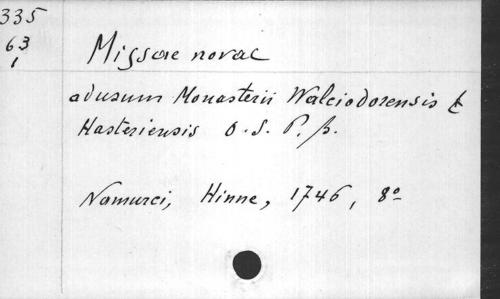 335
63
1
Missae novae
ad usum Monasterii Walciodorensis &
Hasteriensis O. S. P. B.
Namurci, Hinne, 1746, 8º